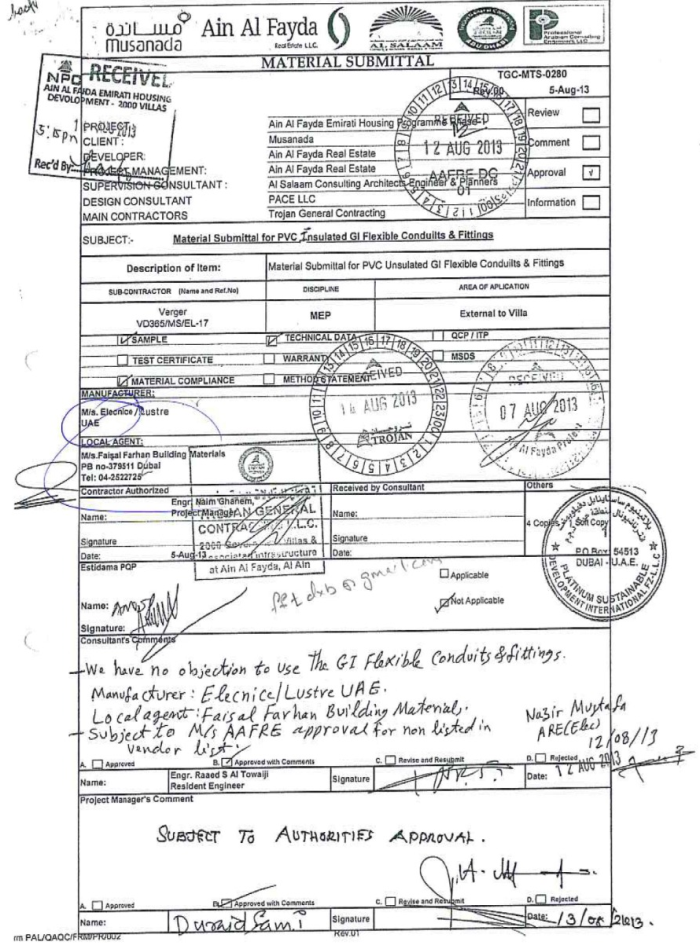 مساندة
musanada
Ain Al Fayda
Real Estate L.L.C.
AL SALAAM
Professional
MATERIAL SUBMITTAL
NPC RECEIVED
AIN AL FAIDA EMIRATI HOUSING
DEVOLOPMENT - 2000 VILLAS
Rec'd By
TGC-MTS-0280
Rev.00 5-Aug-13
PROJECT: Ain Al Fayda Emirati Housing Programme Phase
CLIENT : Musanada
DEVELOPER: Ain Al Fayda Real Estate
PROJECT MANAGEMENT: Ain Al Fayda Real Estate
SUPERVISION CONSULTANT : Al Salaam Consulting Architects Engineer & Planners
DESIGN CONSULTANT PACE LLC
MAIN CONTRACTORS Trojan General Contracting
RECEIVED
12 AUG 2013
AAFRE DC
01
Review
Comment
Approval
Information
SUBJECT:- Material Submittal for PVC Insulated GI Flexible Conduilts & Fittings
Description of Item: Material Submittal for PVC Unsulated GI Flexible Conduilts & Fittings
SUB-CONTRACTOR (Name and Ref.No) DISCIPLINE AREA OF APLICATION
Verger
VD365/MS/EL-17 MEP External to Villa
SAMPLE TECHNICAL DATA QCP / ITP
TEST CERTIFICATE WARRANTY MSDS
MATERIAL COMPLIANCE METHOD STATEMENT
RECEIVED
14 AUG 2013
TROJAN
RECEIVED
07 AUG 2013
Al Fayda Project
MANUFACTURER:
M/s. Elecnice / Lustre
UAE
LOCAL AGENT:
M/s.Faisal Farhan Building Materials
PB no-379511 Dubai
Tel: 04-2522725
Contractor Authorized Received by Consultant Others
Engr. Naim Ghanem,
Name: Project Manager Name:
4 Copies + 1 Soft Copy
TROJAN GENERAL
CONTRACTING L.L.C.
at Ain Al Fayda, Al Ain
Signature Signature
Date: 5-Aug-13 Date:
P.O.Box: 54513
DUBAI - U.A.E.
PLATINUM SUSTAINABLE
DEVELOPMENT INTERNATIONAL FZ-L.L.C
Estidama PQP
Applicable
Not Applicable
Name:
Signature:
Consultant's Comments
- We have no objection to use The GI Flexible Conduits & fittings.
Manufacturer : Elecnice/Lustre UAE.
Local agent : Faisal Farhan Building Materials.
- Subject to M/s AAFRE approval for non listed in
vendor list.
Nazir Mustafa
ARE(Elec)
12/08/13
A. Approved B. Approved with Comments C. Revise and Resubmit D. Rejected
Name: Engr. Raaed S Al Towaiji
Resident Engineer Signature Date: 12 AUG 2013
Project Manager's Comment
SUBJECT TO AUTHORITIES APPROVAL.
A. Approved B. Approved with Comments C. Revise and Resubmit D. Rejected
Name: Duraid Sami Signature Date: 13/08/2013
rm PAL/QAQC/FRM/PR/002 Rev.01